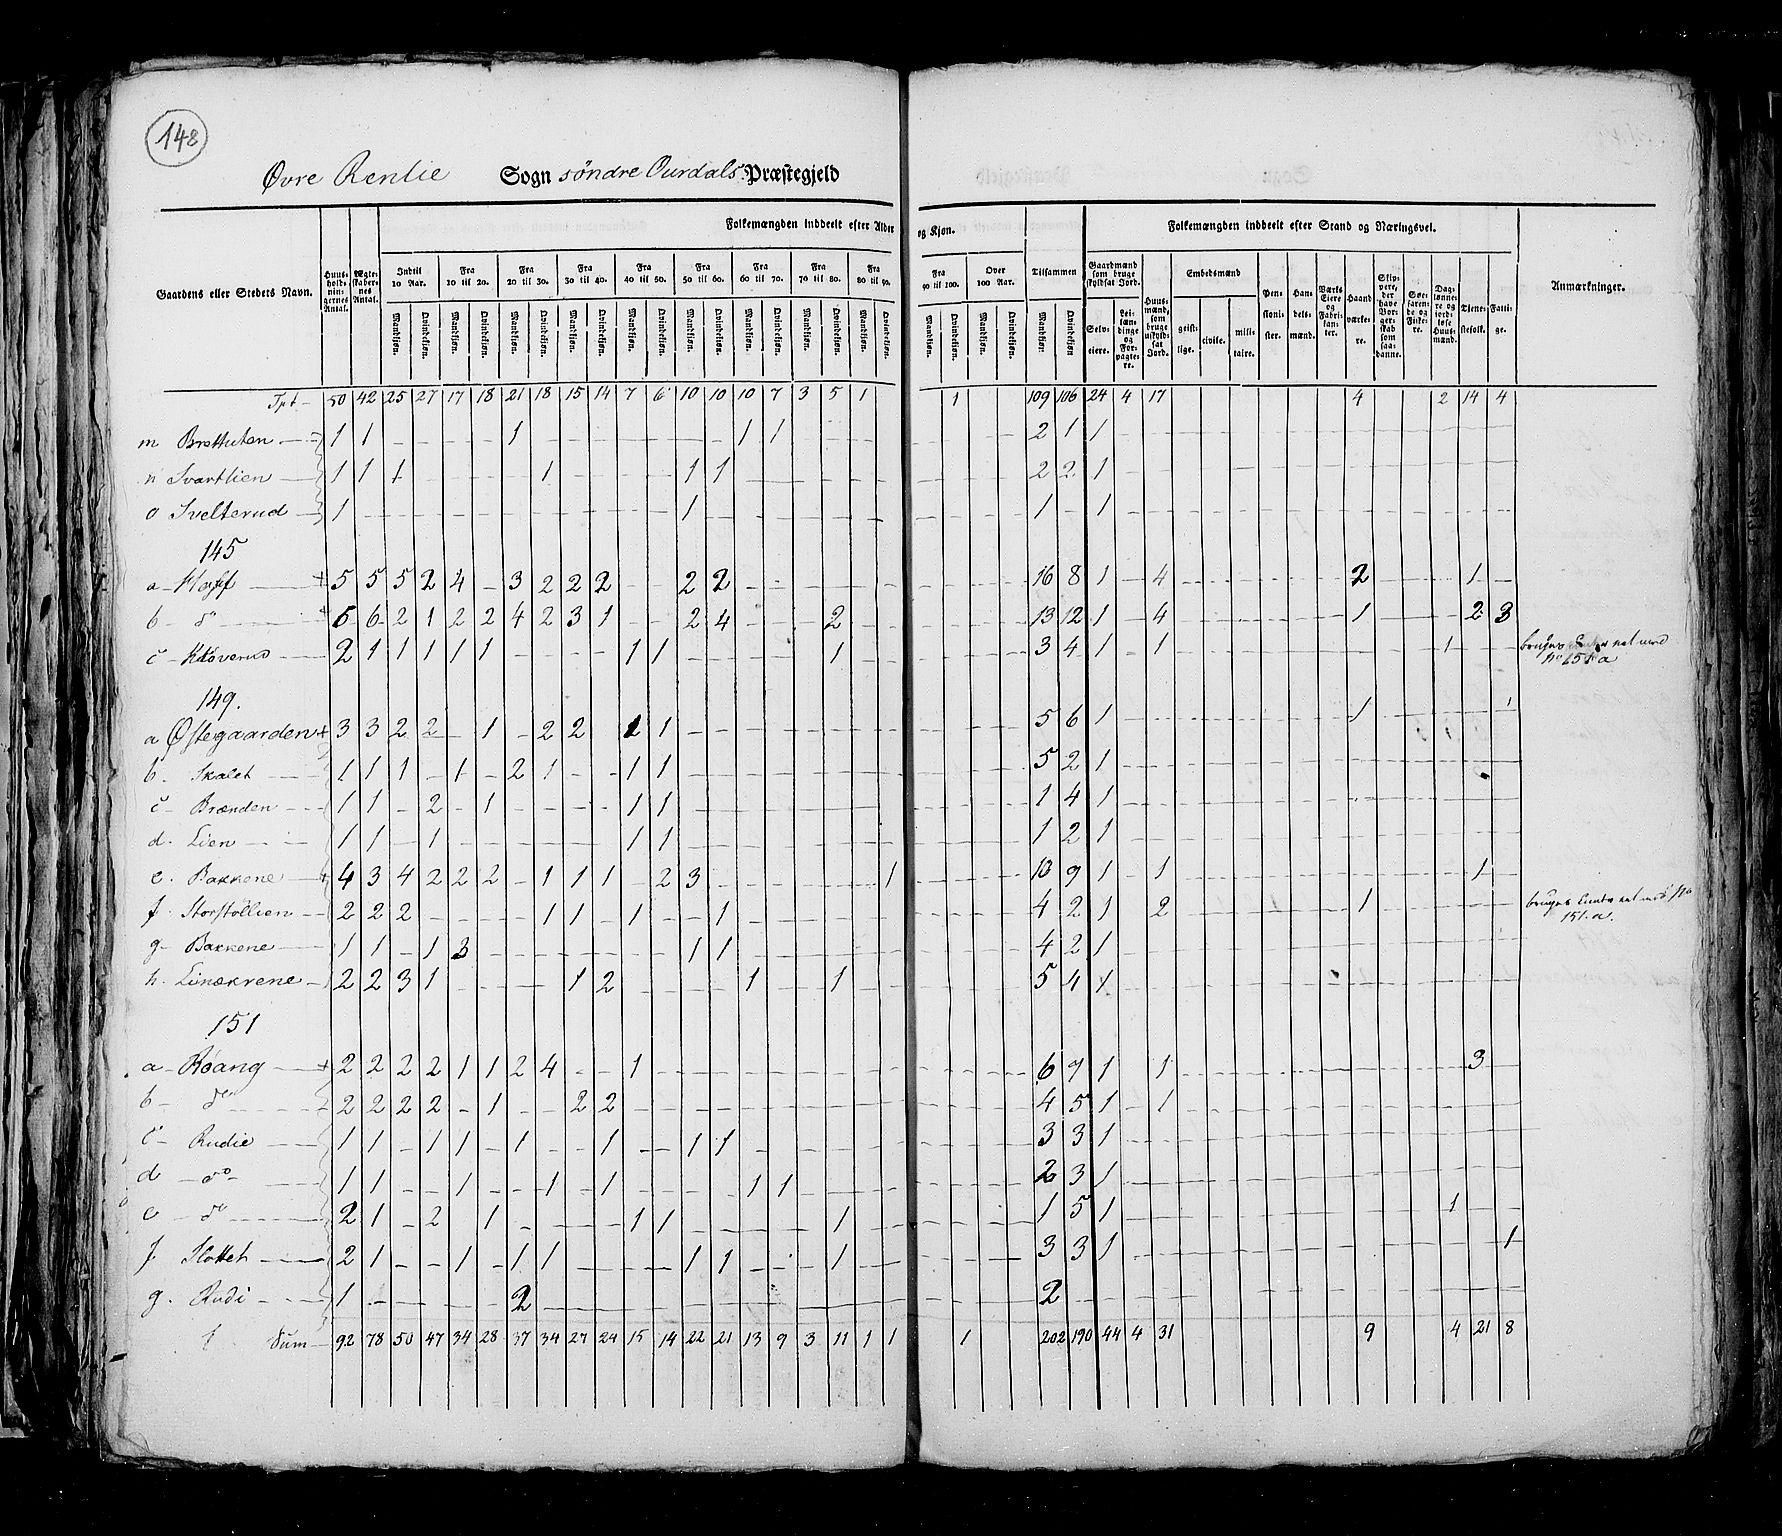 148
Øvre Renlie Sogn søndre Ourdals Præstegjeld
Folkemængden inddeelt efter Alder og Kjøn. Folkemængden inddeelt efter Stand og Næringsvei.
Gaardens eller Stedets Navn. Huusholdningernes Antal. Ægteskabernes Antal. Indtil 10 Aar. Fra 10 til 20. Fra 20 til 30. Fra 30 til 40. Fra 40 til 50. Fra 50 til 60. Fra 60 til 70. Fra 70 til 80. Fra 80 til 90. Fra 90 til 100. Over 100 Aar. Tilsammen Gaardmænd som bruge skyldsat Jord. Huusmænd, som bruge uskyldsat Jord. Embedsmænd Pensionister. Handelsmænd. Værks Eiere og Fabrikanter. Haandværkere. Skippere, der have Borgerskab som saadanne. Søefarende og Fiskere. Daglønnere og jordløse Huusmænd. Tjenestefolk. Fattige. Anmærkninger.
Mandkjøn. Qvindekjøn. Mandkjøn. Qvindekjøn. Mandkjøn. Qvindekjøn. Mandkjøn. Qvindekjøn. Mandkjøn. Qvindekjøn. Mandkjøn. Qvindekjøn. Mandkjøn. Qvindekjøn. Mandkjøn. Qvindekjøn. Mandkjøn. Qvindekjøn. Mandkjøn. Qvindekjøn. Mandkjøn. Qvindekjøn. Mandkjøn. Qvindekjøn Selveiere. Leilændinge og Forpagtere. geistlige. civile. militaire.
Tpt - 50 42 25 27 17 18 21 18 15 14 7 6 10 10 10 7 3 5 1 1 109 106 24 4 17 4 2 14 4
m Brattuten 1 1 1 1 1 2 1 1
n Svartlien 1 1 1 1 1 1 2 2 1
o Svelterud 1 1 1 1
145
a Hoff 5 5 5 2 4 3 2 2 2 2 2 16 8 1 4 2 1
b do 6 6 2 1 2 2 4 2 3 1 2 4 2 13 12 1 4 1 2 3
c Kløverud 2 1 1 1 1 1 1 1 1 3 4 1 1 1 No 151 a
149.
a Østegaarden 3 3 2 2 1 2 2 1 1 5 6 1 1 1
b. Skalet 1 1 1 1 2 1 1 1 5 2 1
c Brænden 1 1 2 1 1 1 1 4 1
d. Lien 1 1 1 1 1 1 2 1
e. Bakkene 4 3 4 2 2 2 1 1 1 2 3 1 10 9 1 1 1
f. Storstøllien 2 2 2 1 1 1 1 4 2 1 2 1 151. a.
g Bakkene 1 1 1 3 1 1 4 2 1
h. Linækrene 2 2 3 1 1 2 1 1 5 4 1
151
a Røang 2 2 2 2 1 1 2 4 1 6 7 1 1 3
b do 2 2 2 2 1 2 2 4 5 1 1
c Rudie 1 1 1 1 1 1 1 1 3 3 1
d do 1 1 1 1 1 1 1 2 3 1
e do 2 1 2 1 1 1 1 1 5 1 1
f Slottet 2 1 1 1 1 1 1 1 3 3 1 1
g. Rudi 1 2 2
Sum 92 78 50 47 34 28 37 34 27 24 15 14 22 21 13 9 3 11 1 1 1 202 190 44 4 31 9 4 21 8